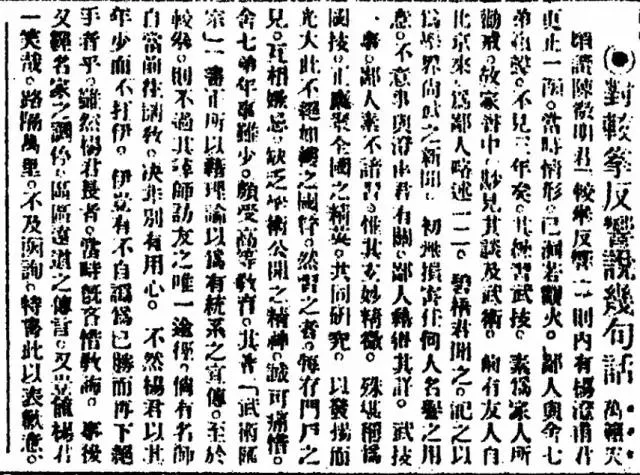 ◉對較拳反響說幾句話 萬籟天
頃讀陳微明君「較拳反響」一則內有楊澄甫君
更正一函。當時情形。已洞若觀火。鄙人與舍七
弟。不見三年矣。其練習武技。素為家人所
勸戒。故家書中。尠見其談及武術。前有友人自
北京來。為鄙人略述一二。碧梧君聞之。記之以
為學界尚武之新聞。初無損害任何人名譽之用
意。不意事與澄甫君有關。鄙人其詳。武技
一舉。鄙人素不諳習。惟其玄妙精微。殊堪稱為
國技。正應聚全國之精英。共同研究。以發揚而
光大此不絕如縷之國粹。然習之者。每存門戶之
見。互相嫉忌。缺乏學術公開之精神。誠可痛惜。
舍七弟年事雖少。頗受高等教育。其著「武術匯
宗」一書正所以藉理論以為有統系之宣傳。至於
較拳。則不過其尋師訪友之唯一途徑。倘有名師
自當前往請教。決非別有用心。不然楊君以其
年少而不打伊。伊竟有不自認為已勝而再下絕
手者乎。雖然楊君長者。當時既吝惜教誨。事後
又經名家之調停。區區遠道之傳言。又豈楊君
一笑哉。路隔萬里。不及函詢。特書此以表歉意。